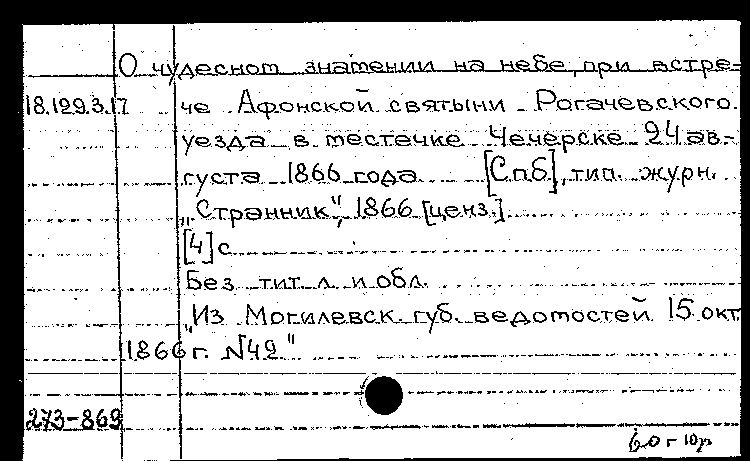 О чудесном знамении на небе, при встре-
18.129.3.17 че Афонской святыни Рогачевского
уезда в местечке Чечерске 24 ав-
густа 1866 года [Спб], тип. журн.
"Странник", 1866 [ценз.]
[4] с
Без тит. л. и обл.
"Из Могилевск. губ. ведомостей 15 окт
1866 г. №42"
273-869